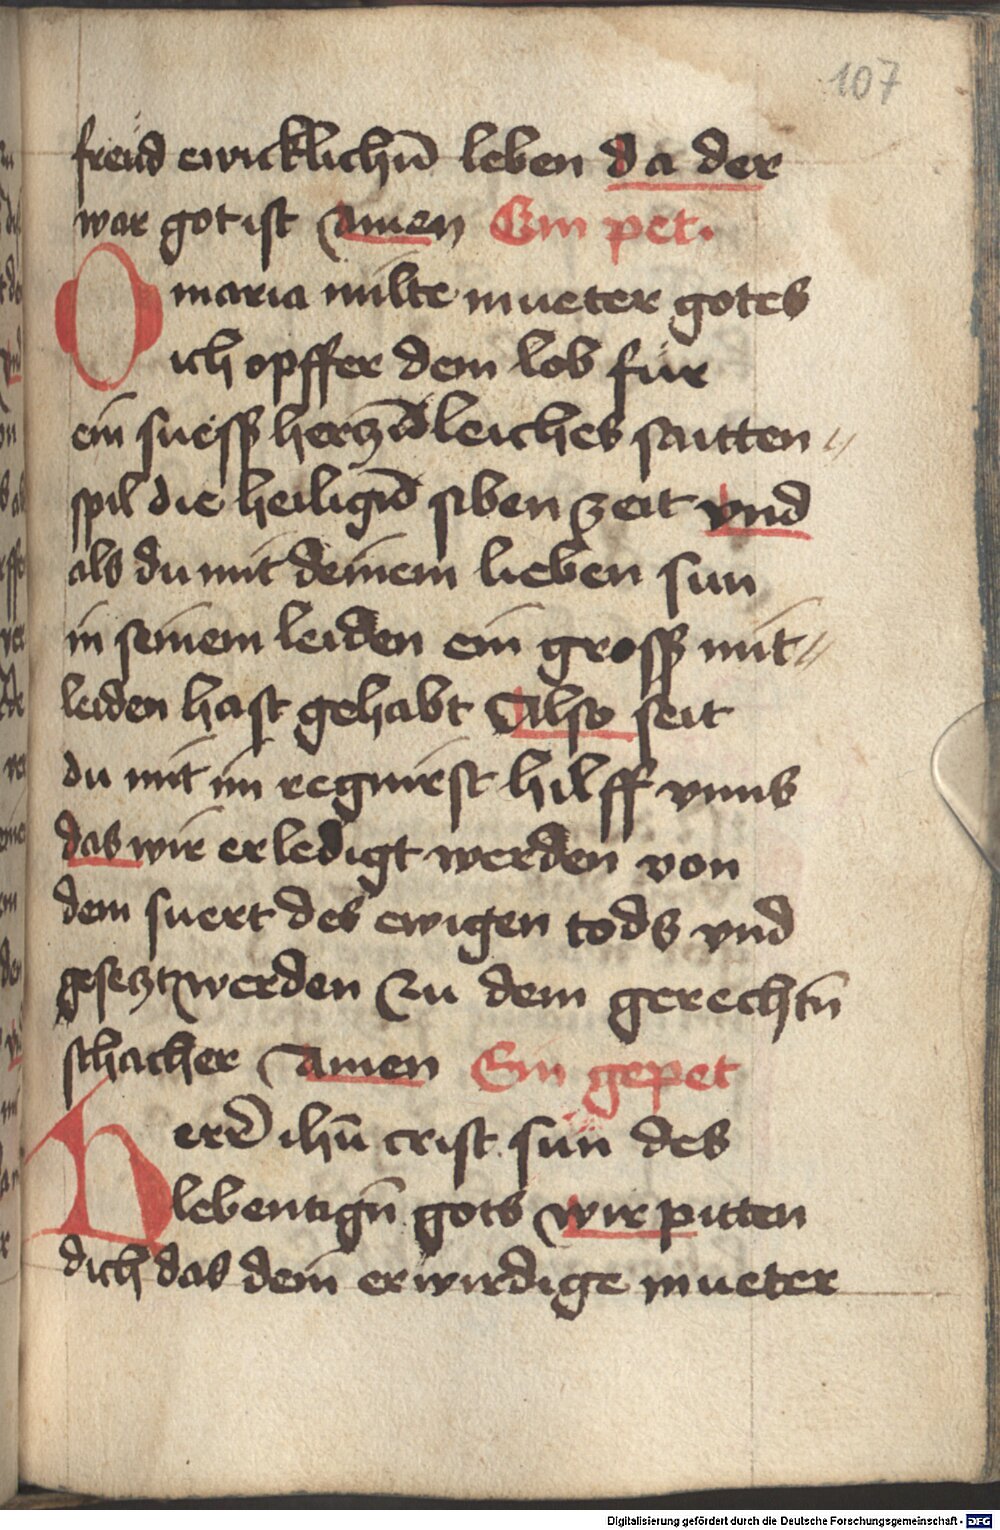 107
freud ewicklichn̄ leben da der
war got ist Amen Ein pet.
O maria milte mueter gotes
ich opffer dem lob für
ein suess hertz leiches saitten //
spil die heilign̄ siben zeit vnd
als du mit deinem lieben sun
in seinem leiden ein gross mit //
leiden hast gehabt Also seit
du mit im regnirst hilff vnns
das wir erledigt werden von
dem suert des ewigen tods vnd
gesetzt werden zu dem gerechtn̄
schacher Amen Ein gepet
Herr̄ ihū crist sun des
lebentign̄ gots wir pitten
dich das dein erwirdige mueter
Digitalisierung gefördert durch die Deutsche Forschungsgemeinschaft - DFG